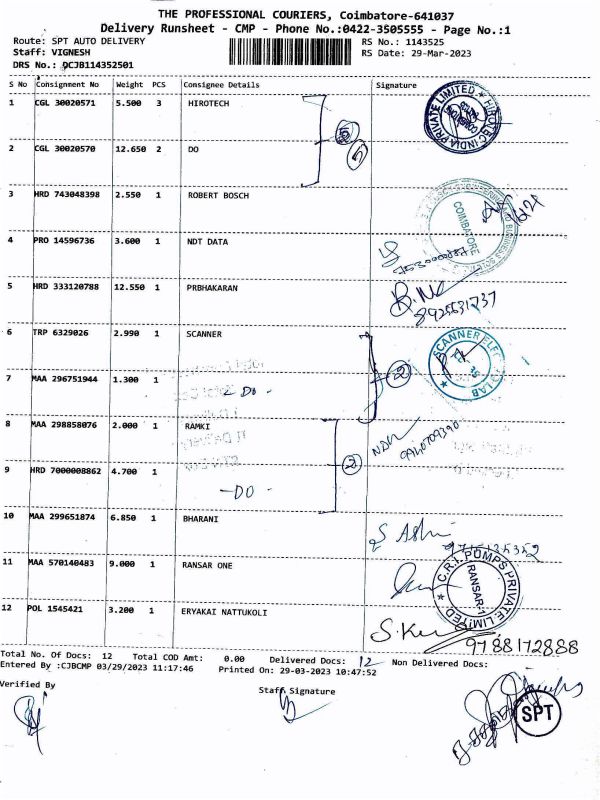 THE PROFESSIONAL COURIERS, Coimbatore-641037
Delivery Runsheet - CMP - Phone No.:0422-3505555 - Page No.:1
Route: SPT AUTO DELIVERY RS No.: 1143525
Staff: VIGNESH RS Date: 29-Mar-2023
DRS No.: QCJB114352501
S No Consignment No Weight PCS Consignee Details Signature
1 CGL 30020571 5.500 3 HIROTECH
HIROTEC INDIA PRIVATE LIMITED
5
2 CGL 30020570 12.650 2 DO
5
3 HRD 743048398 2.550 1 ROBERT BOSCH
COIMBATORE
4 PRO 14596736 3.600 1 NDT DATA
5 HRD 333120788 12.550 1 PRBHAKARAN
8925631737
6 TRP 6329026 2.990 1 SCANNER
SCANNER LAB
2
7 MAA 296751944 1.300 1
- DO -
8 MAA 298858076 2.000 1 RAMKI
2
9 HRD 7000008862 4.700 1
- DO -
10 MAA 299651874 6.850 1 BHARANI
11 MAA 570140483 9.000 1 RANSAR ONE
C.R.I. PUMPS PRIVATE LIMITED
RANSAR-1
12 POL 1545421 3.200 1 ERYAKAI NATTUKOLI
9788172888
Total No. Of Docs: 12 Total COD Amt: 0.00 Delivered Docs: 12 Non Delivered Docs:
Entered By :CJBCMP 03/29/2023 11:17:46 Printed On: 29-03-2023 10:47:52
Verified By Staff Signature
SPT